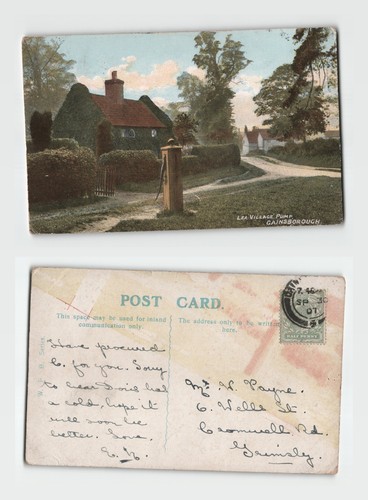 LEA VILLAGE PUMP.
GAINSBOROUGH.
POST CARD.
This space may be used for inland
communication only.
The address only to be written
here.
Have procured
C. for you. Sorry
to hear Doris has
a cold, hope it
will soon be
better. Love.
Mr W. Payne.
6. Wells St.
Cromwell Rd.
Grimsby.
SP 30
07
HALF PENNY